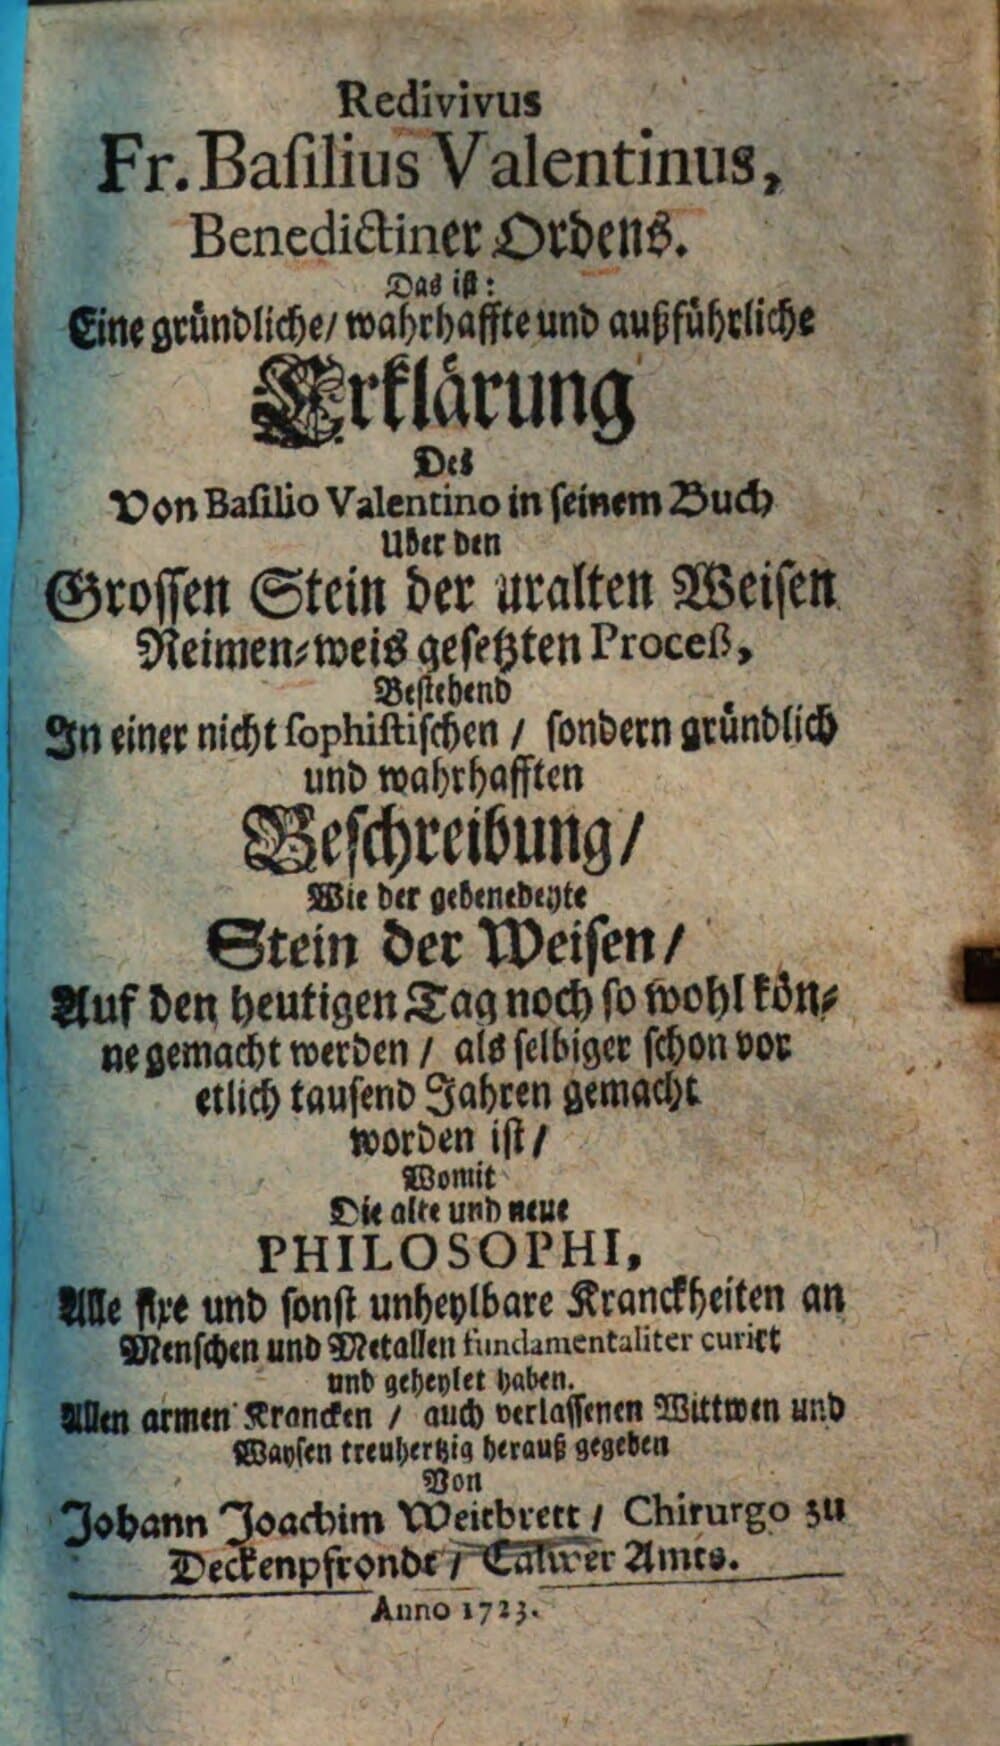 Redivivus
Fr. Baſilius Valentinus,
Benedictiner Ordens.
Das iſt:
Eine gründliche/ wahrhaffte und außführliche
Erklärung
Des
Von Baſilio Valentino in ſeinem Buch
Uber den
Groſſen Stein der uralten Weiſen
Reimen-weis geſetzten Proceß,
Beſtehend
In einer nicht ſophiſtiſchen / ſondern gründlich
und wahrhafften
Beſchreibung/
Wie der gebenedeyte
Stein der Weiſen/
Auf den heutigen Tag noch ſo wohl kön-
ne gemacht werden / als ſelbiger ſchon vor
etlich tauſend Jahren gemacht
worden iſt/
Womit
Die alte und neue
PHILOSOPHI,
Alle fixe und ſonſt unheylbare Kranckheiten an
Menſchen und Metallen fundamentaliter curirt
und geheylet haben.
Allen armen Krancken / auch verlaſſenen Wittwen und
Wayſen treuhertzig herauß gegeben
Von
Johann Joachim Weitbrett / Chirurgo zu
Deckenpfrondt / Calwer Amts.
Anno 1723.